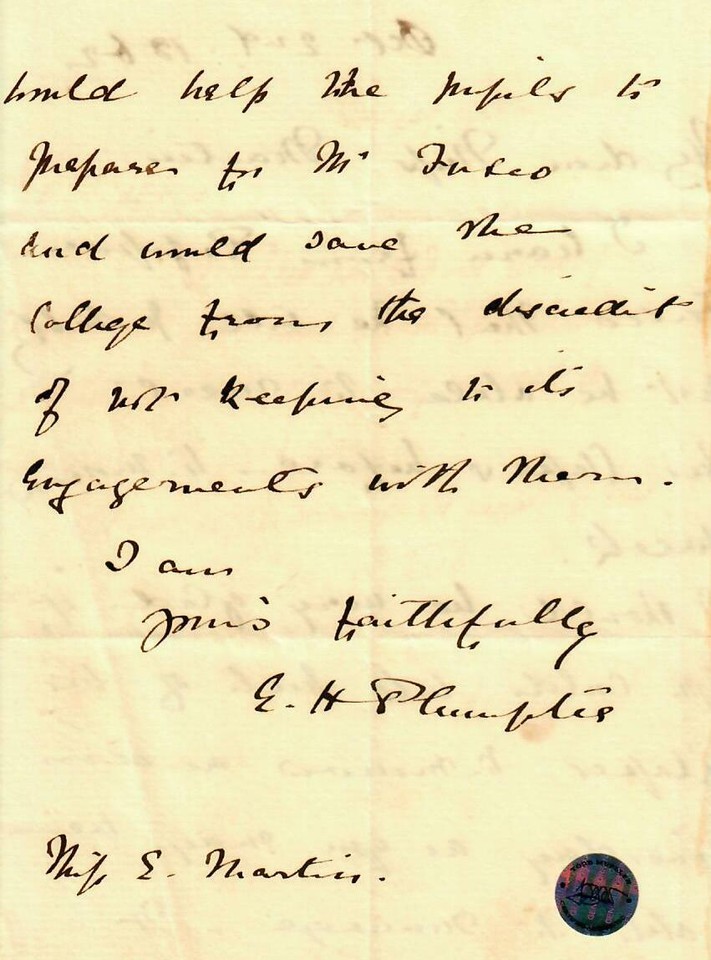 would help the pupils to
prepare for Mr Fusco
and would save the
College from the discredit
of not keeping to its
engagements with them.
I am
yours faithfully
E. H Plumptre
Miss E. Martin.